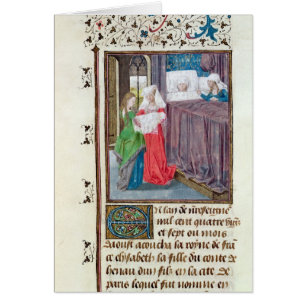 En lan de nreseigne
mil cent quatre vigz
et sept ou mois
daoust acoucha la royne de frā
ce elysabeth la fille du conte de
henau dun filz en la cite de
paris lequel fut nomme en